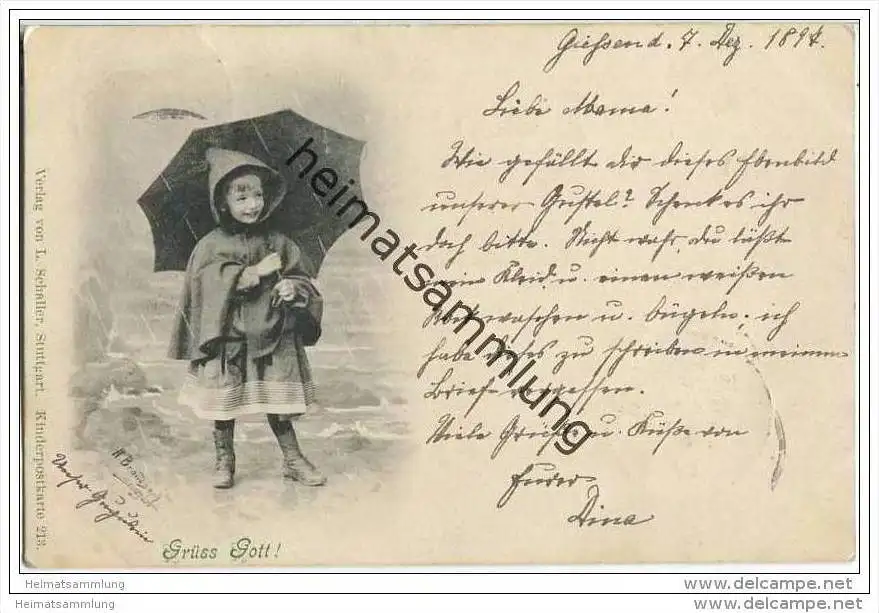 Giessend. 7. Dez. 1897.
Liebe Mama!
Wie gefällt dir dieses Ebenbild
unserer Gustel? Schenk es ihr
doch bitte. Nicht wahr, du läßt
mein Kleid u. einen weißen
Rock waschen u. bügeln, ich
habe dieses zu schreiben in meinem
Brief vergessen.
Viele Grüße u. Küße von
Eurer
Dina
Verlag von L. Schaller, Stuttgart. Kinderpostkarte 213.
Unser
Grüss Gott!
heimatsammlung
Heimatsammlung
Heimatsammlung
www.delcampe.net
www.delcampe.net